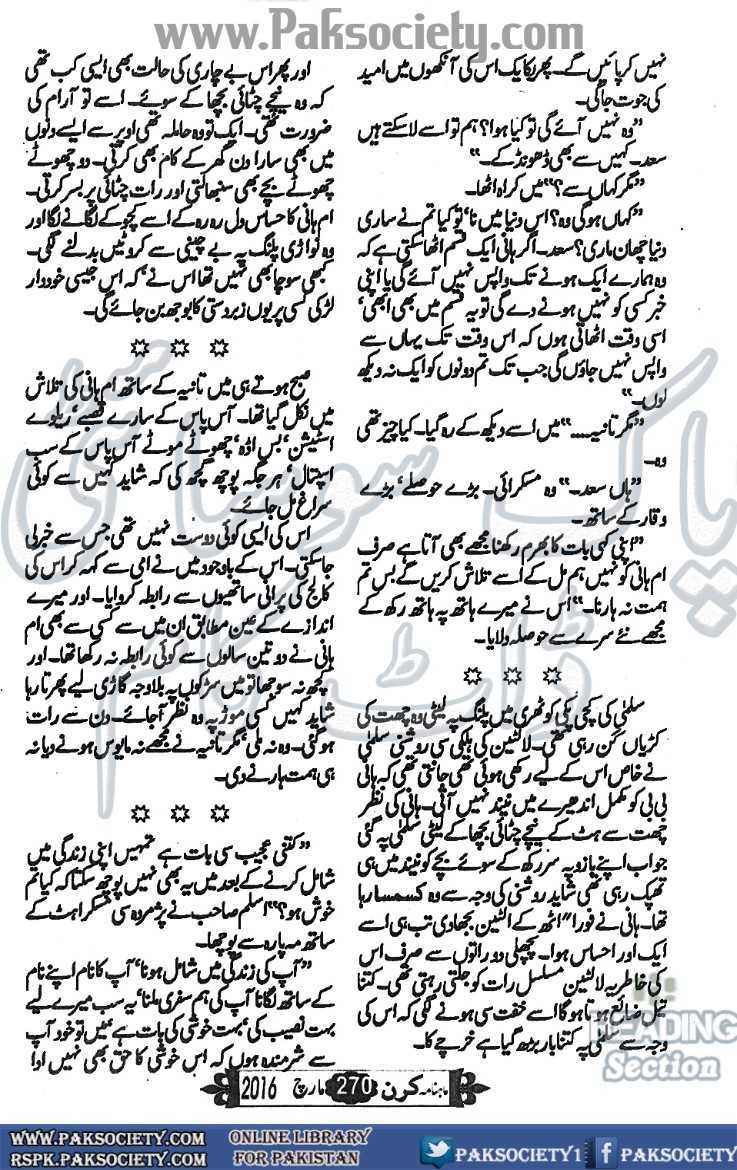 www.Paksociety.com
نہیں کر پائیں گے۔ پھر یکایک اس کی آنکھوں میں امید
کی جوت جاگی۔
”وہ نہیں آئے گی تو کیا ہوا؟ ہم تو اسے لا سکتے ہیں
سعد۔ کہیں سے بھی ڈھونڈ کے۔“
”مگر کہاں سے؟“ میں کراہ اٹھا۔
”کہاں ہوگی وہ؟ اس دنیا میں نا‘ تو کیا تم نے ساری
دنیا چھان ماری؟ سعد۔ اگر ہانی ایک قسم اٹھا سکتی ہے کہ
وہ ہمارے ایک ہونے تک واپس نہیں آئے گی یا اپنی
خبر کسی کو نہیں ہونے دے گی تو یہ قسم میں بھی ابھی‘
اسی وقت اٹھاتی ہوں کہ اس وقت تک یہاں سے
واپس نہیں جاؤں گی جب تک تم دونوں کو ایک نہ دیکھ
لوں۔“
”مگر تانیہ....“ میں اسے دیکھ کے رہ گیا۔ کیا چیز تھی
وہ۔
”ہاں سعد۔“ وہ مسکرائی۔ بڑے حوصلے‘ بڑے
وقار کے ساتھ۔
”اپنی کسی بات کا بھرم رکھنا مجھے بھی آتا ہے صرف
ام ہانی کو نہیں ہم مل کے اسے تلاش کریں گے بس تم
ہمت نہ ہارنا۔“ اس نے میرے ہاتھ پہ ہاتھ رکھ کے
مجھے نئے سرے سے حوصلہ دلایا۔
سلمٰی کی کچی پکی کوٹھری میں پلنگ پہ لیٹی وہ چھت کی
کڑیاں گن رہی تھی۔ لالٹین کی ہلکی سی روشنی سلمٰی
نے خاص اس کے لیے رکھی ہوئی تھی جانتی تھی کہ ہانی
بی بی کو مکمل اندھیرے میں نیند نہیں آتی۔ ہانی کی نظر
چھت سے ہٹ کے نیچے چٹائی بچھا کے لیٹی سلمٰی پہ گئی
جو اب اپنے بازو پہ سر رکھ کے سوئے بچے کو نیند میں ہی
تھپک رہی تھی شاید روشنی کی وجہ سے وہ کسمسا رہا
تھا۔ ہانی نے فورا“ اٹھ کے لالٹین بجھا دی تب ہی اسے
ایک اور احساس ہوا۔ پچھلی دو راتوں سے صرف اس
کی خاطر یہ لالٹین مسلسل رات کو جلتی رہتی تھی۔ کتنا
تیل ضائع ہوتا ہوگا اسے خفت سی ہونے لگی کہ اس کی
وجہ سے سلمٰی پہ کتنا بار بڑھ گیا ہے خرچے کا۔
اور پھر اس بے چاری کی حالت بھی ایسی کب تھی
کہ وہ نیچے چٹائی بچھا کے سوئے۔ اسے تو آرام کی
ضرورت تھی۔ ایک تو وہ حاملہ تھی اوپر سے ایسے دنوں
میں بھی سارا دن گھر کے کام بھی کرتی۔ دو چھوٹے
چھوٹے بچے بھی سنبھالتی اور رات چٹائی پر بسر کرتی۔
ام ہانی کا حساس دل رہ رہ کے اسے کچوکے لگانے لگا اور
وہ نواڑی پلنگ پہ بے چینی سے کروٹیں بدلنے لگی۔
کبھی سوچا بھی نہیں تھا اس نے‘ کہ اس جیسی خوددار
لڑکی کسی پر یوں زبردستی کا بوجھ بن جائے گی۔
صبح ہوتے ہی میں تانیہ کے ساتھ ام ہانی کی تلاش
میں نکل گیا تھا۔ آس پاس کے سارے قصبے‘ ریلوے
اسٹیشن‘ بس اڈہ‘ چھوٹے موٹے آس پاس کے سب
اسپتال‘ ہر جگہ پوچھ گچھ کی کہ شاید کہیں سے کوئی
سراغ مل جائے۔
اس کی ایسی کوئی دوست نہیں تھی جس سے خبر لی
جا سکتی۔ اس کے باوجود میں نے امی سے کہہ کر اس کی
کالج کی پرانی ساتھیوں سے رابطہ کروایا۔ اور میرے
اندازے کے عین مطابق ان میں سے کسی سے بھی ام
ہانی نے دو تین سالوں سے کوئی رابطہ نہ رکھا تھا۔ اور
کچھ نہ سوجھا تو میں سڑکوں پہ بلا وجہ گاڑی لیے پھرتا رہا
شاید کہیں کسی موڑ پہ وہ نظر آجائے۔ دن سے رات
ہوگئی۔ وہ نہ ملی‘ مگر تانیہ نے مجھے نہ مایوس ہونے دیا نہ
ہی ہمت ہارنے دی۔
”کتنی عجیب سی بات ہے تمہیں اپنی زندگی میں
شامل کرنے کے بعد میں یہ بھی نہیں پوچھ سکتا کہ کیا تم
خوش ہو؟“ اسلم صاحب نے پژمردہ سی مسکراہٹ کے
ساتھ مہ پارہ سے پوچھا۔
”آپ کی زندگی میں شامل ہونا‘ آپ کا نام اپنے نام
کے ساتھ لگانا آپ کی ہم سفری ملنا‘ یہ سب میرے لیے
بہت نصیب کی‘ بہت خوشی کی بات ہے‘ میں تو خود آپ
سے شرمندہ ہوں کہ اس خوشی کا حق بھی نہیں ادا
ماہنامہ کرن 270 مارچ 2016
پاک سوسائٹی
ڈاٹ کام
READING
Section
WWW.PAKSOCIETY.COM
RSPK.PAKSOCIETY.COM
ONLINE LIBRARY
FOR PAKISTAN
PAKSOCIETY1
PAKSOCIETY